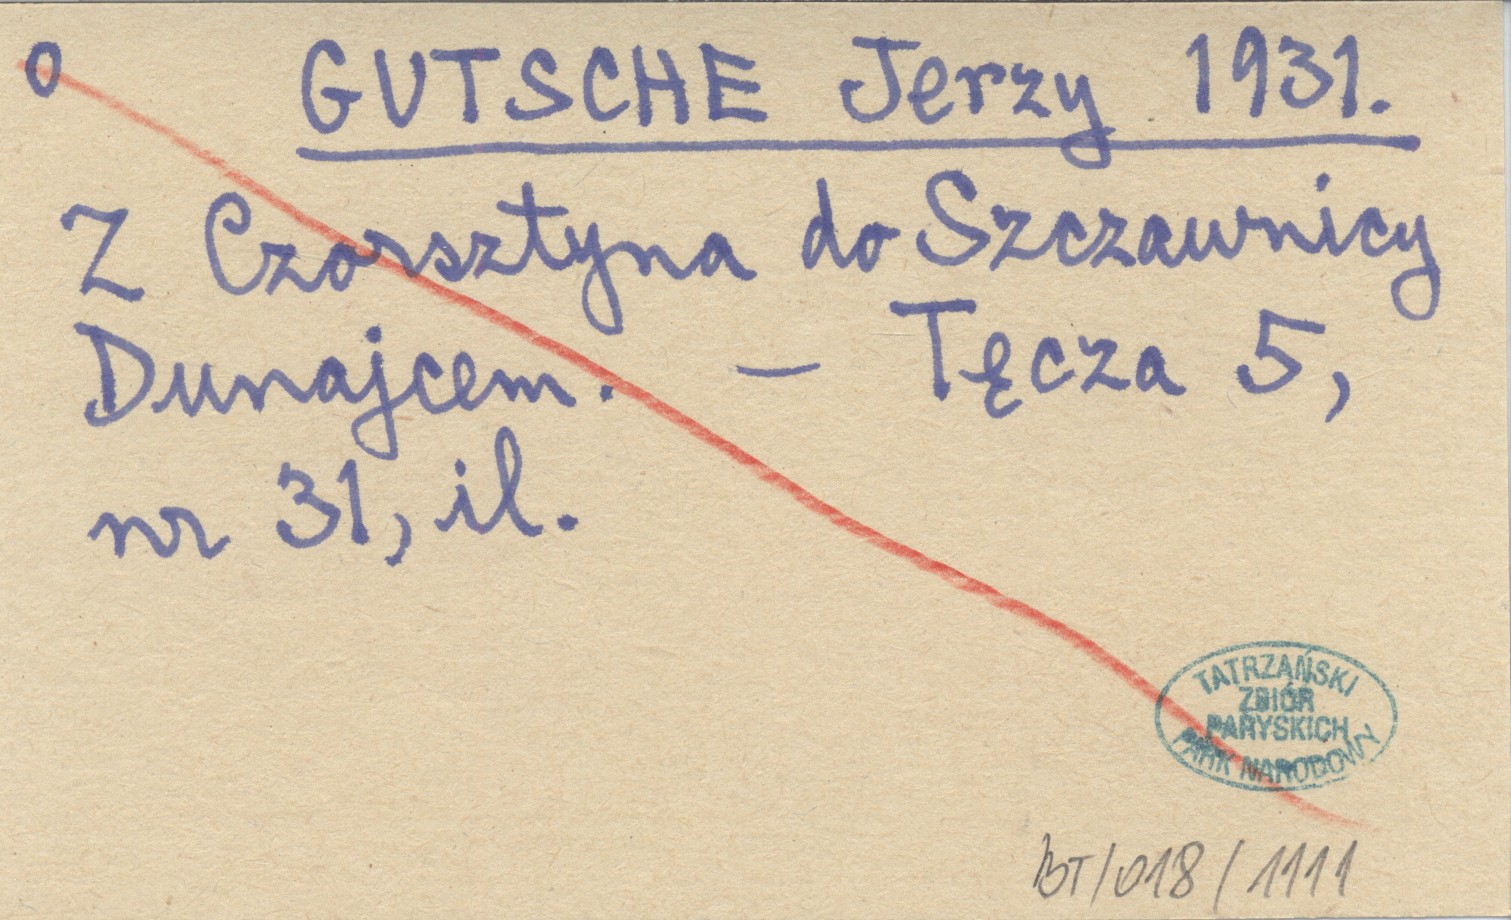 O GUTSCHE Jerzy 1931.
Z Czorsztyna do Szczawnicy
Dunajcem. — Tęcza 5,
nr 31, il.
TATRZAŃSKI
ZBIÓR
PARYSKICH
PARK NARODOWY
BT/018/1111